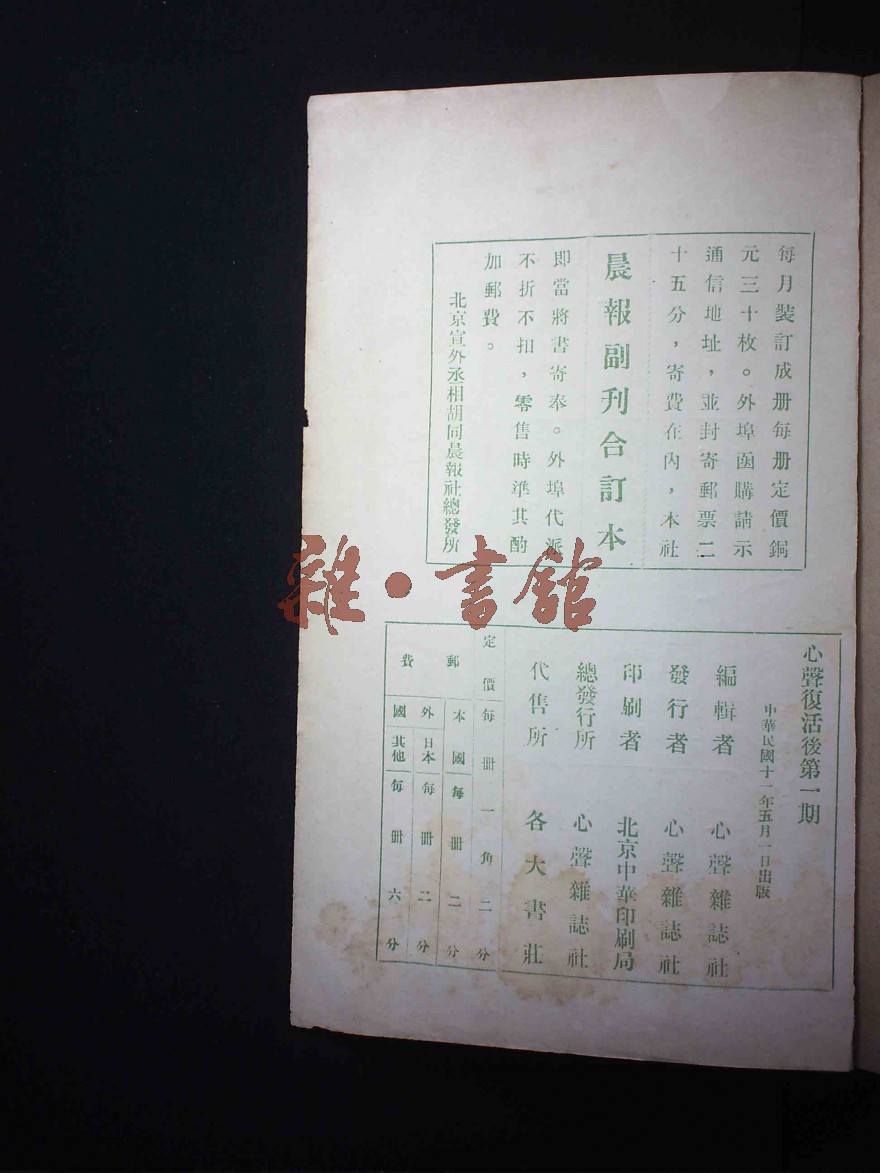 每月裝訂成册每册定價銅
元三十枚。外埠函購請示
通信地址，並封寄郵票二
十五分，寄費在內，本社
晨報副刊合訂本
即當將書寄奉。外埠代派
不折不扣，零售時準其酌
加郵費。
北京宣外丞相胡同晨報社總發所
雜·書館
心聲復活後第一期
中華民國十一年五月一日出版
編輯者 心聲雜誌社
發行者 心聲雜誌社
印刷者 北京中華印刷局
總發行所 心聲雜誌社
代售所 各大書莊
定價每冊一角二分
郵費
本國每冊二分
外國
日本每冊二分
其他每冊六分